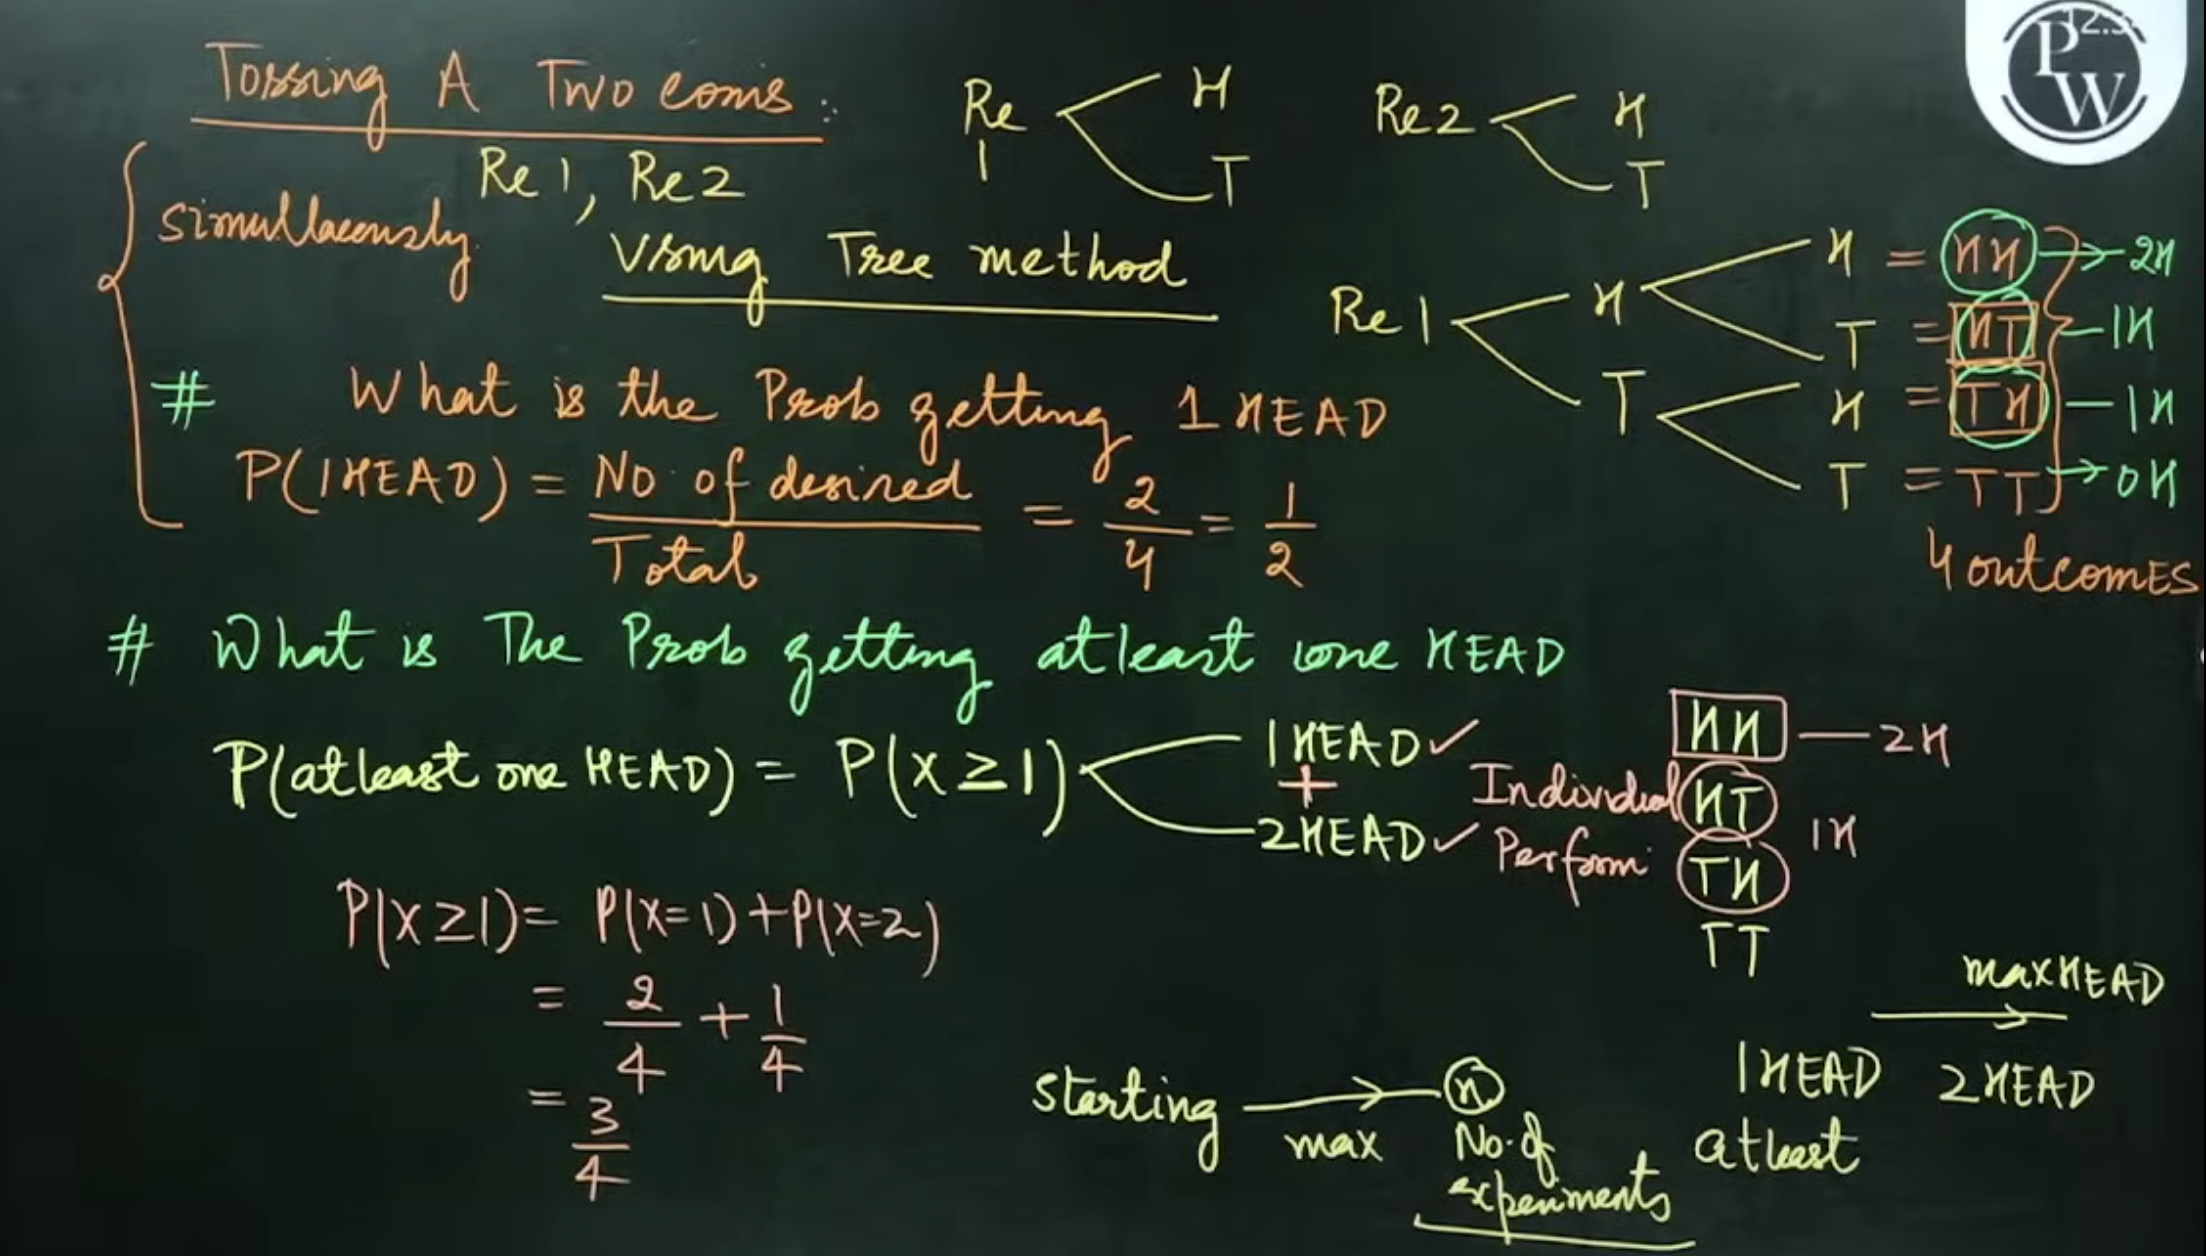 Tossing A Two coins :
Re 1, Re 2
simultaneously
Using Tree method
Re 1 H T
Re 2 H T
PW
Re 1 H H = HH → 2H
T = HT — 1H
T H = TH — 1H
T = TT → 0H
4 outcomES
# What is the Prob getting 1 HEAD
P(1HEAD) = No. of desired / Total = 2/4 = 1/2
# What is The Prob getting atleast one HEAD
P(atleast one HEAD) = P(X ≥ 1)
1 HEAD ✓
+
2 HEAD ✓
Individual
Perform
HH — 2H
HT
TH 1H
TT
P(X ≥ 1) = P(X = 1) + P(X = 2)
= 2/4 + 1/4
= 3/4
starting → n
max
No. of
experiments
maxHEAD
1 HEAD → 2 HEAD
atleast